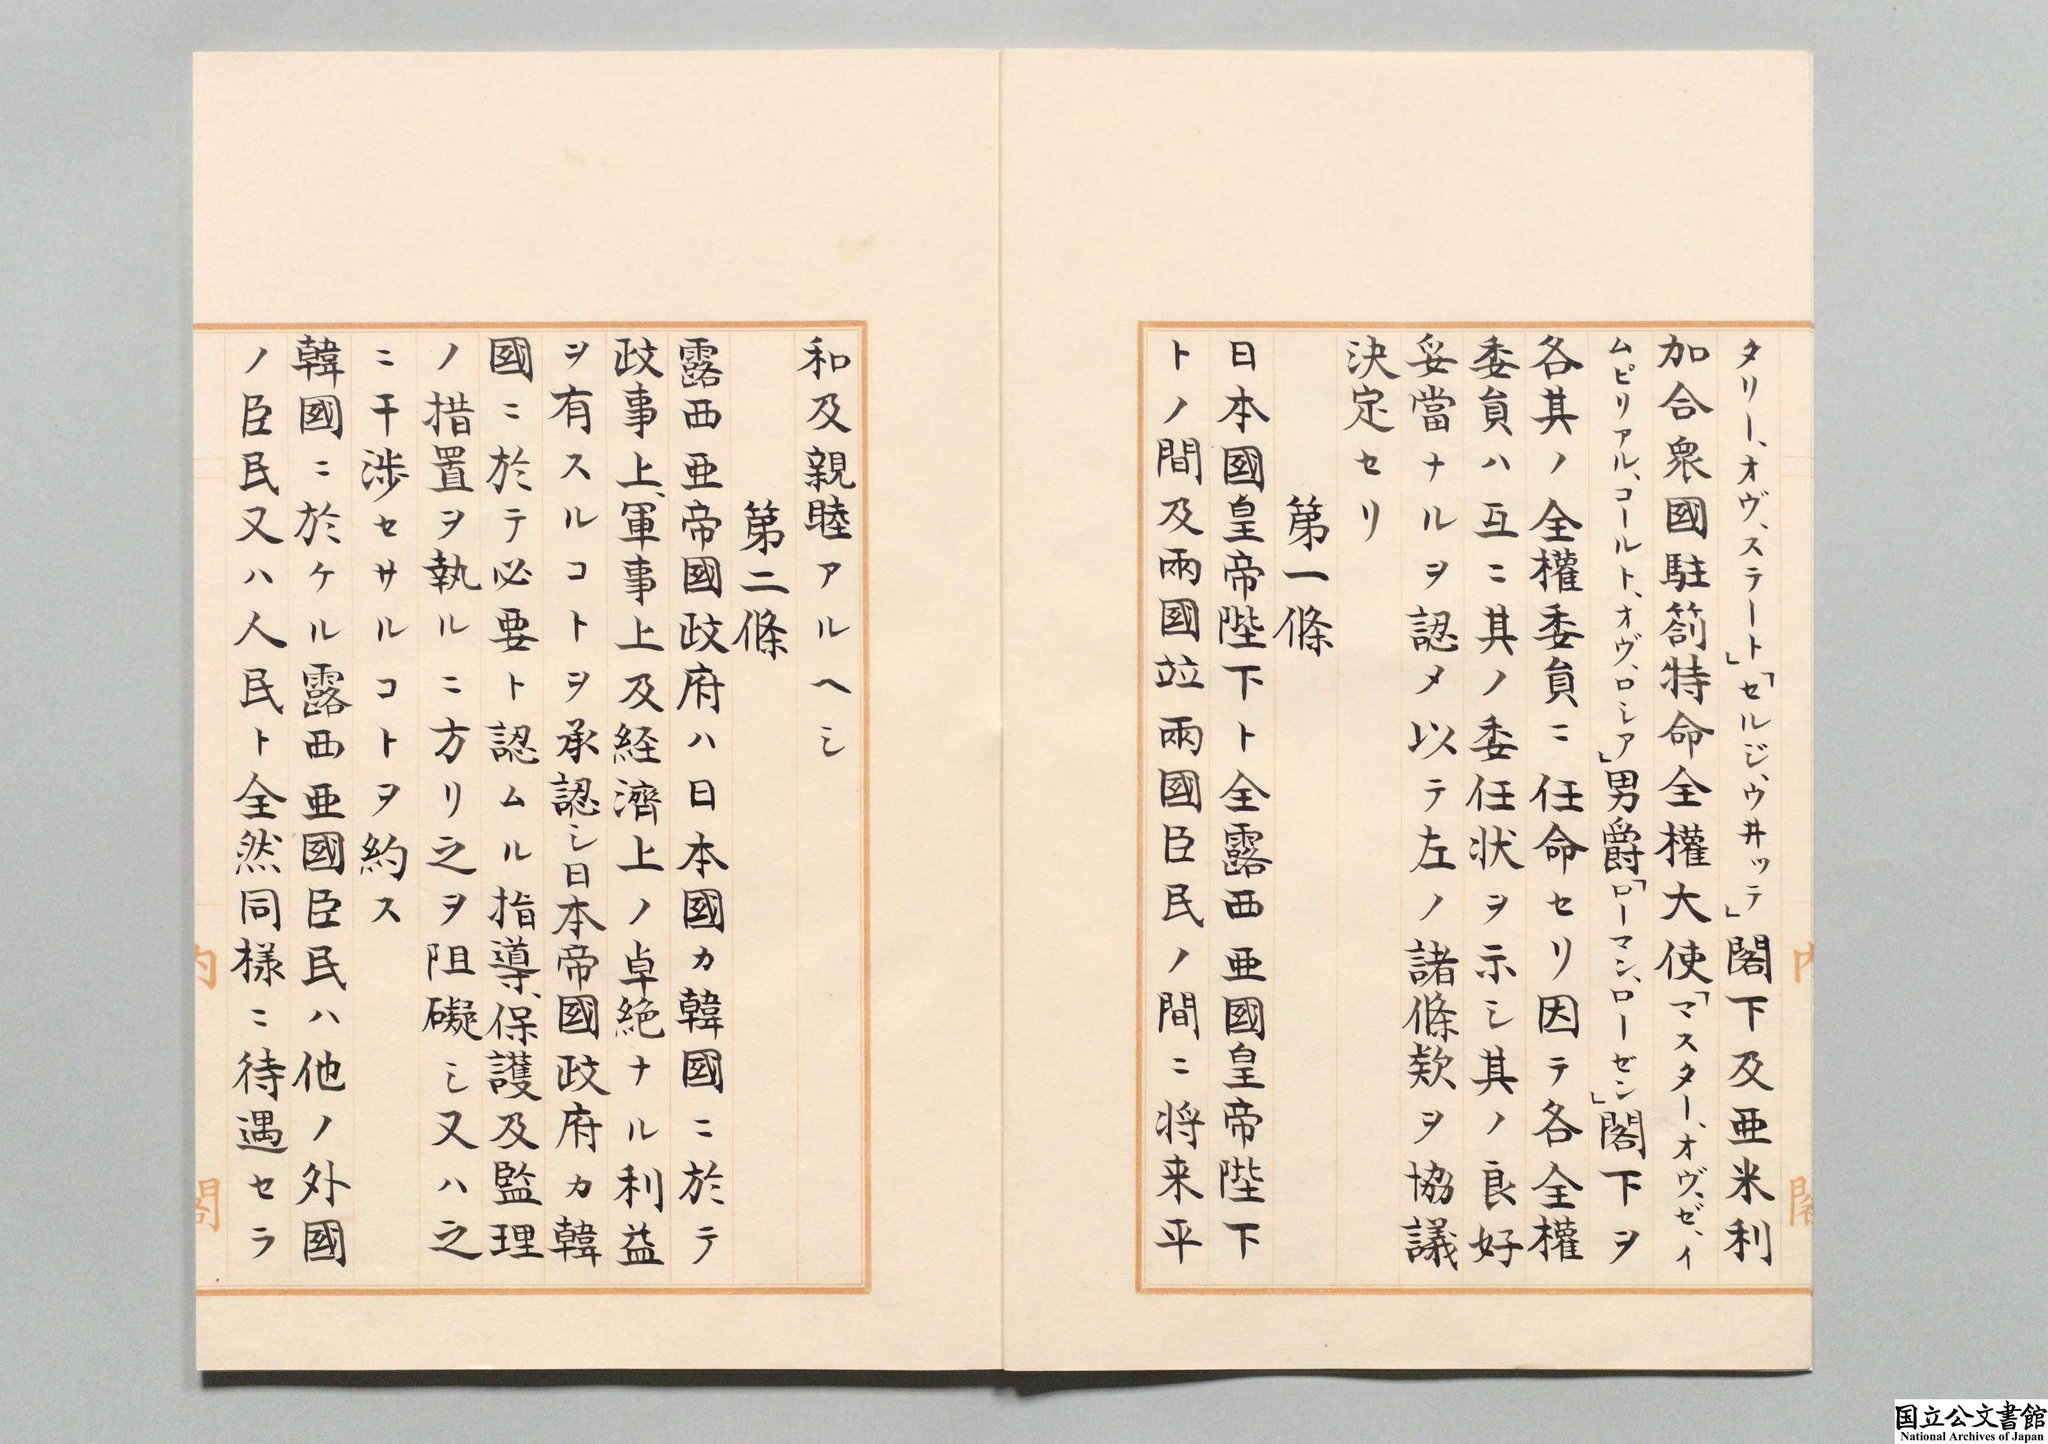 タリー、オヴ、ステート」「セルジ、ウ井ッテ」閣下及亜米利
加合衆國駐箚特命全權大使「マスター、オヴ、ゼ、イ
ムピリアル、コールト、オヴ、ロシア」男爵「ローマン、ローゼン」閣下ヲ
各其ノ全權委員ニ任命セリ因テ各全權
委員ハ互ニ其ノ委任状ヲ示シ其ノ良好
妥當ナルヲ認メ以テ左ノ諸條款ヲ協議
決定セリ
第一條
日本國皇帝陛下ト全露西亜國皇帝陛下
トノ間及兩國竝兩國臣民ノ間ニ将来平
和及親睦アルヘシ
第二條
露西亜帝國政府ハ日本國カ韓國ニ於テ
政事上、軍事上及経濟上ノ卓絶ナル利益
ヲ有スルコトヲ承認シ日本帝國政府カ韓
國ニ於テ必要ト認ムル指導、保護及監理
ノ措置ヲ執ルニ方リ之ヲ阻礙シ又ハ之
ニ干渉セサルコトヲ約ス
韓國ニ於ケル露西亜國臣民ハ他ノ外國
ノ臣民又ハ人民ト全然同様ニ待遇セラ
内閣
内閣
国立公文書館
National Archives of Japan